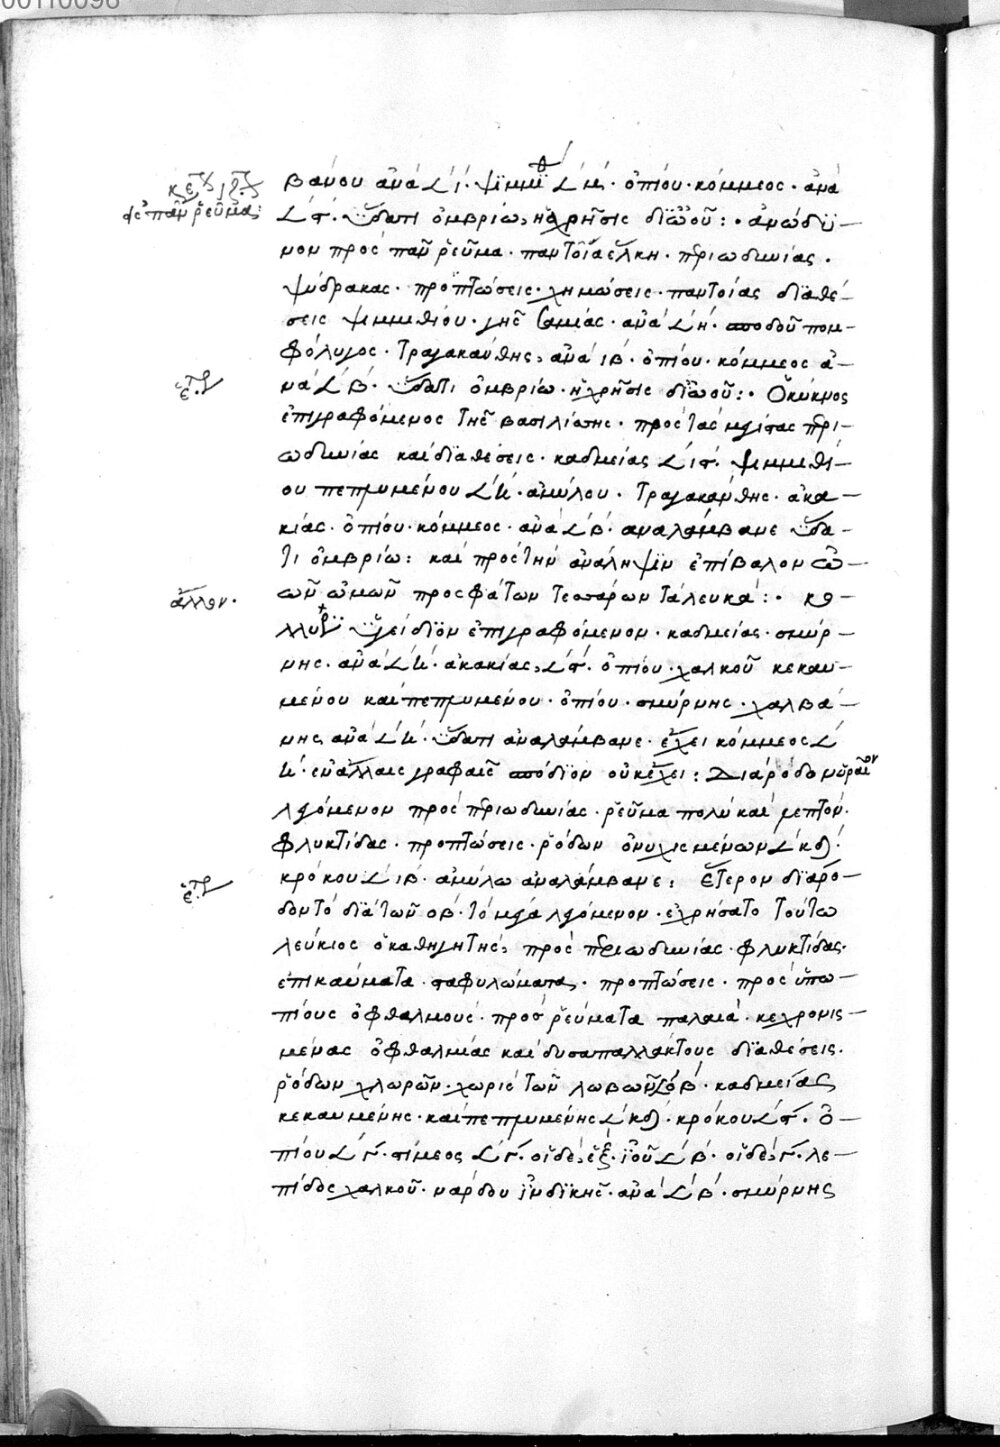 βάνου ἀνὰ ι. ψιμμι η. ὀπίου. κόμμεος. ἀνὰ
ὕδατι ὀμβρίῳ, ἡ χρῆσις δι' ὠοῦ: ἀνώδυ-
νον πρὸς πᾶν ῥεῦμα. παντοῖα ἕλκη. περιωδυνίας.
πρὸς πᾶν ῥεῦμα:
ψύδρακας. προπτώσεις. χημώσεις. παντοίας διαθέ-
σεις ψιμμιθίου. γῆς σαμίας. ἀνὰ η. σποδοῦ πομ-
φόλυγος. τραγακάνθης, ἀνὰ ιβ. ὀπίου. κόμμεος ἀ-
νὰ β. ὕδατι ὀμβρίῳ. ἡ χρῆσις δι' ὠοῦ: ὁ κύκνος
ἐπιγραφόμενος τῆς βασιλίσσης. πρὸς τὰς μεγίστας περι-
ωδυνίας καὶ διαθέσεις. καδμείας ιστ. ψιμμιθί-
ου πεπλυμένου κ. ἀμύλου. τραγακάνθης. ἀκα-
κίας. ὀπίου. κόμμεος. ἀνὰ β. ἀναλάμβανε ὕδα-
τι ὀμβρίῳ: καὶ πρὸς τὴν ἀνάληψιν ἐπίβαλον ὠ-
ὠῶν ὠμῶν προσφάτων τεσσάρων τὰ λευκά: κο-
ἄλλον.
ἐπιγραφόμενον. καδμείας. σμύρ-
νης. ἀνὰ κ. ἀκακίας, στ. ὀπίου. χαλκοῦ κεκαυ-
μένου καὶ πεπλυμένου. ὀπίου. σμύρνης. χαλβά-
νης ἀνὰ κ. ὕδατι ἀναλάμβανε. ἔχει κόμμεος
κ. ἐν ἄλλαις γραφαῖς σπόδιον οὐκ ἔχει: διάροδον
λεγόμενον πρὸς περιωδυνίας. ῥεῦμα πολὺ καὶ λεπτόν.
φλυκτίδας. προπτώσεις. ῥόδων ὀνυχισμένων κδ.
κρόκου ιβ. ἀμύλῳ ἀναλάμβανε: ἕτερον διάρο-
δον τὸ διὰ τῶν οβ. τὸ μέγα λεγόμενον. ἐχρήσατο τούτῳ
λεύκιος ὁ καθηγητής, πρὸς περιωδυνίας. φλυκτίδας.
ἐπικαύματα. σταφυλώματα. προπτώσεις. πρὸς ὑπω-
πίους ὀφθαλμούς. πρὸς ῥεύματα παλαιά. κεχρονισ-
μένας ὀφθαλμίας καὶ δυσαπαλλάκτους διαθέσεις.
ῥόδων χλωρῶν. χωρὶς τῶν λοβῶν οβ. καδμείας
κεκαυμένης. καὶ πεπλυμένης κδ. κρόκου στ. ὀ-
πίου γ. στίμεος γ. οἱ δέ, ἕξ. ἰοῦ β. οἱ δέ, γ. λε-
πίδος χαλκοῦ. νάρδου ἰνδικῆς. ἀνὰ β. σμύρνης